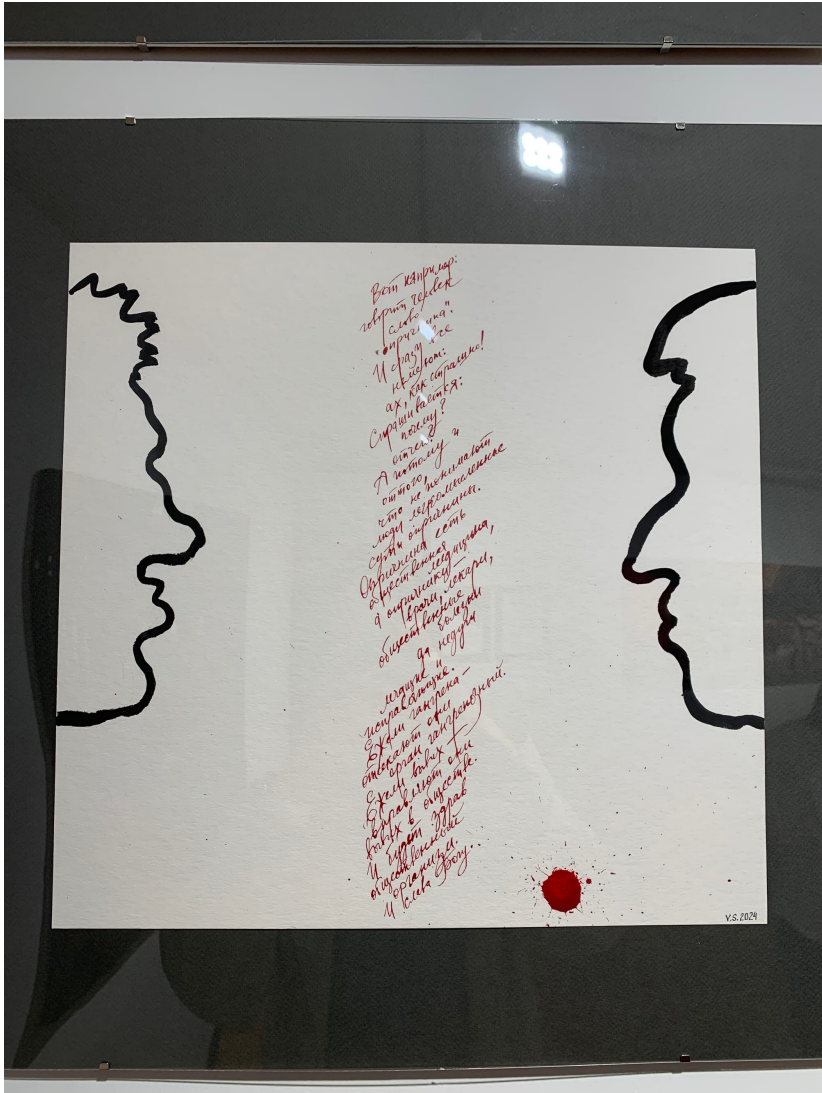 Вот например:
говорит человек
слово
"опричнина".
И сразу все
немеют:
ах, как страшно!
Спрашивается:
почему?
отчего?
А потому и
оттого,
что не понимают
люди легкомысленные
сути опричнины.
Опричнина есть
общественная медицина,
а опричники —
врачи, лекари,
общественные
болезни
да недуги
исправляющие.
Ежели гангрена —
отсекают они
орган гангренозный.
Ежели вывих —
вправляют они
вывих в обществе.
И будет здрав
общественный
организм.
И слава Богу...
V.S.2024